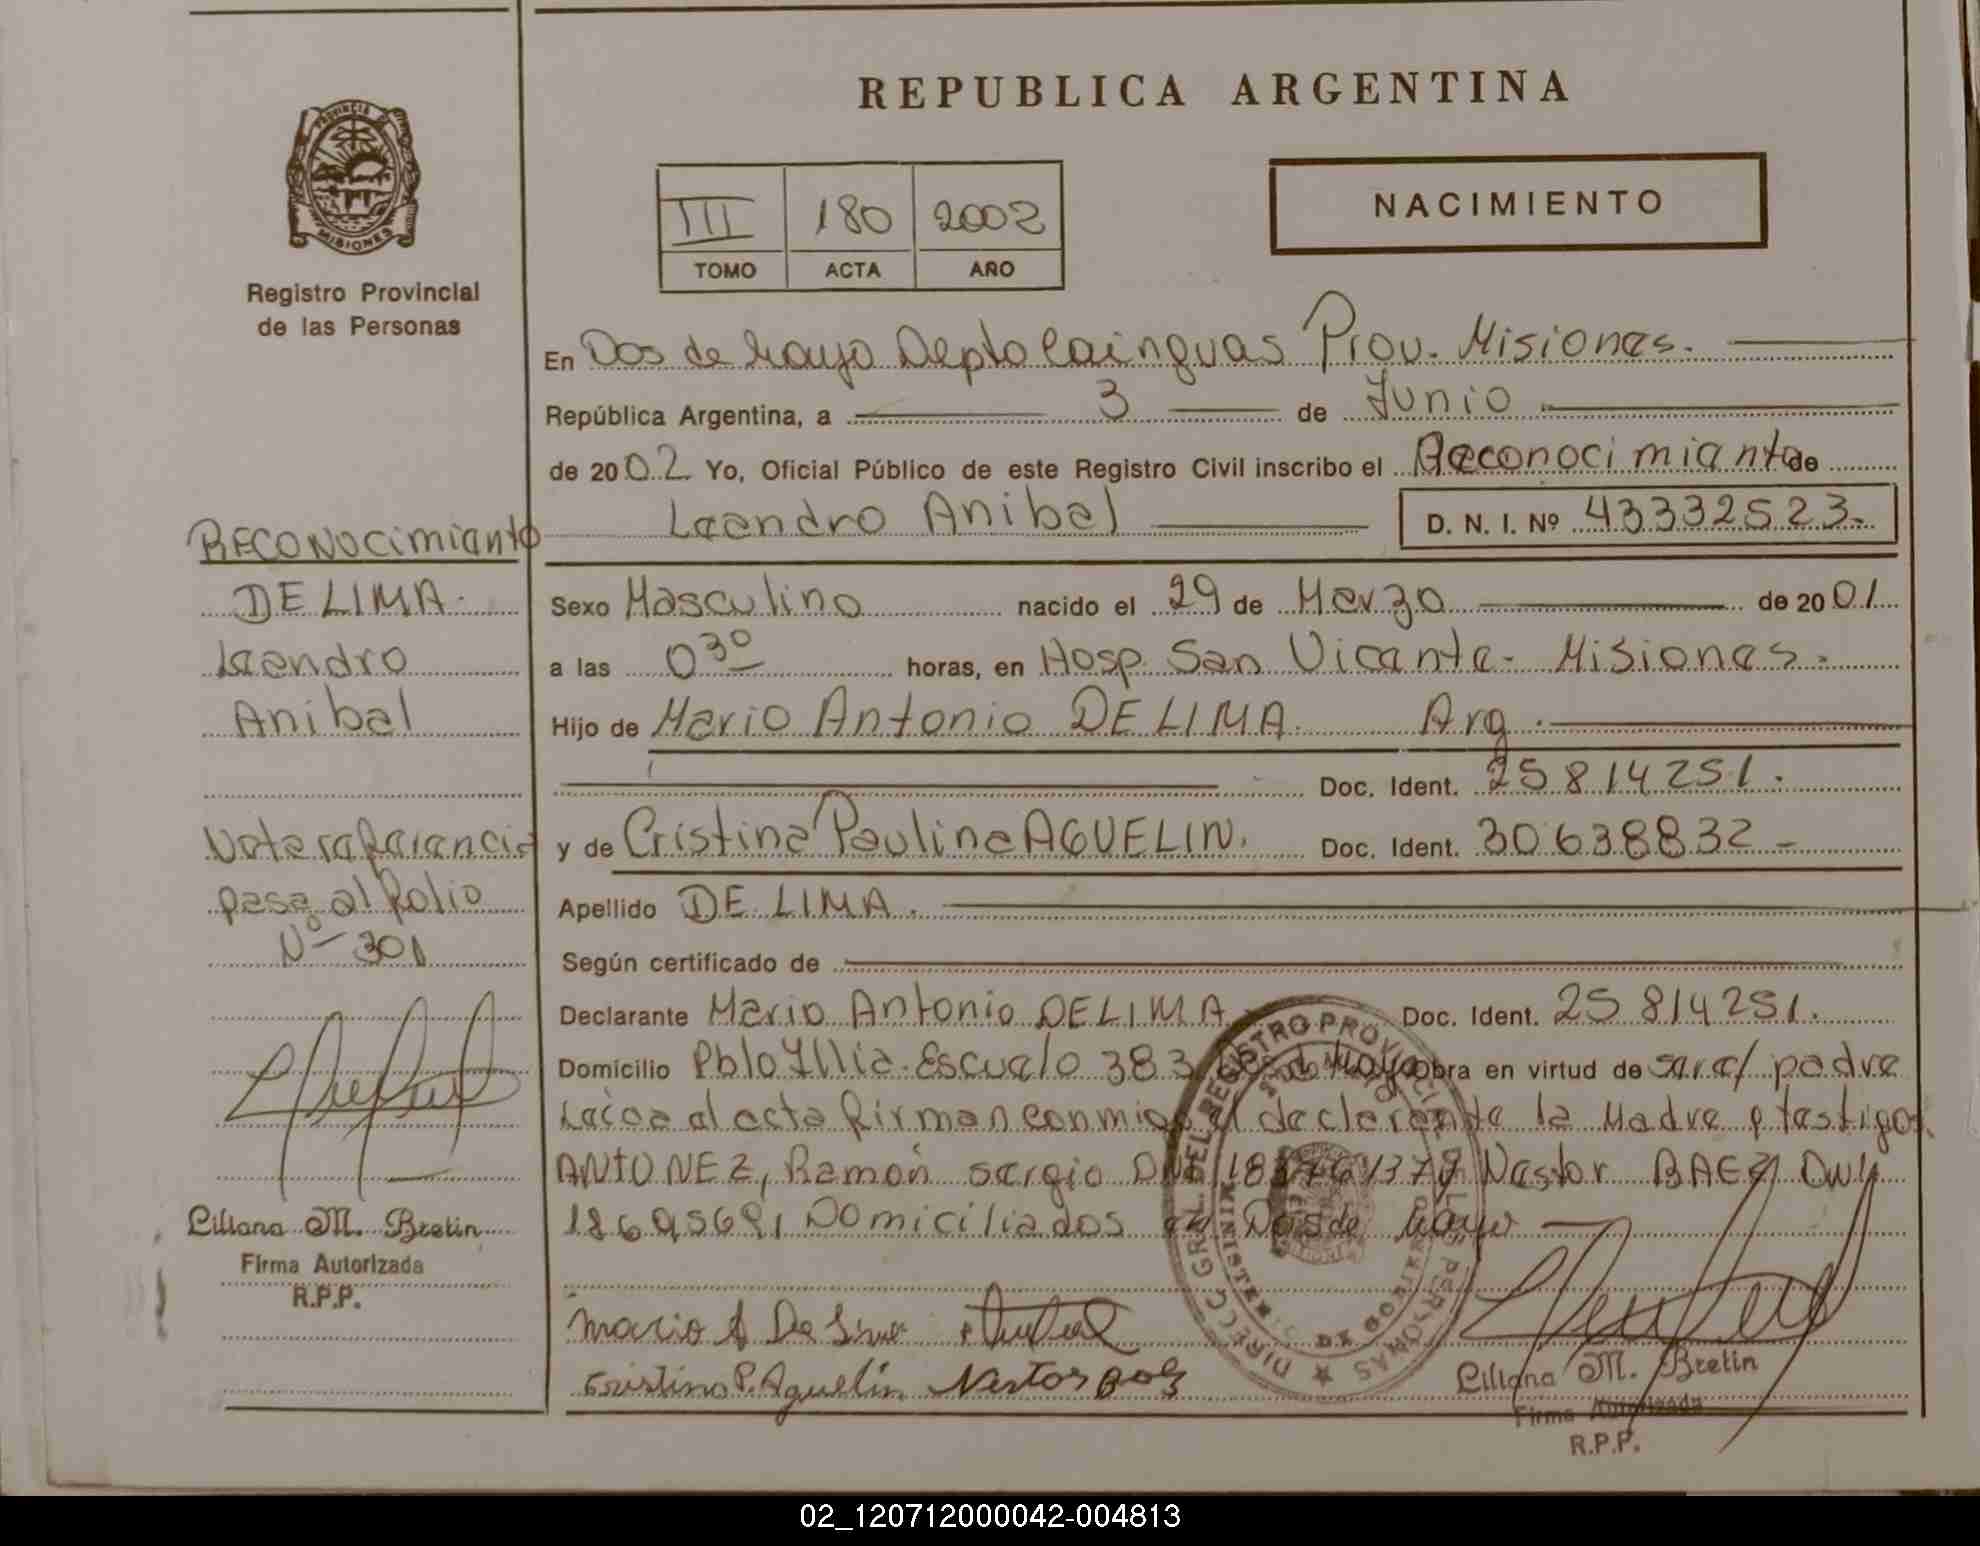 REPUBLICA ARGENTINA
PROVINCIA DE
MISIONES
Registro Provincial
de las Personas
III 180 2002
TOMO ACTA AÑO
NACIMIENTO
En Dos de Mayo Depto Cainguas Prov. Misiones.
República Argentina, a 3 de Junio
de 2002 Yo, Oficial Público de este Registro Civil inscribo el Reconocimiento de
Leandro Anibal D. N. I. Nº 43332523-
Sexo Masculino nacido el 29 de Marzo de 2001
a las 030 horas, en Hosp. San Vicente - Misiones.
Hijo de Mario Antonio DE LIMA. Arg.
Doc. Ident. 25814251.
y de Cristina Paulina AGUELIN. Doc. Ident. 30638832-
Apellido DE LIMA.
Según certificado de
Declarante Mario Antonio DE LIMA Doc. Ident. 25814251.
Domicilio Pblo Illia-Escuela 383 Dos de Mayo obra en virtud de ser el padre
Leida el acta firman conmigo el declarante la Madre y testigos
ANTUNEZ, Ramón Sergio DNI Nestor BAEZ DNI
18695691 Domiciliados en Dos de Mayo
Mario A De Lima
Cristina P. Aguelín Nestor Baez
Liliana M. Bretin
Firma Autorizada
R.P.P.
RECONOCIMIENTO
DE LIMA.
Leandro
Anibal
Nota referencia
pasa al folio
Nº 301
Liliana M. Bretin
Firma Autorizada
R.P.P.
DIRECC GRAL. DEL REGISTRO PROVINCIAL DE LAS PERSONAS
02_120712000042-004813